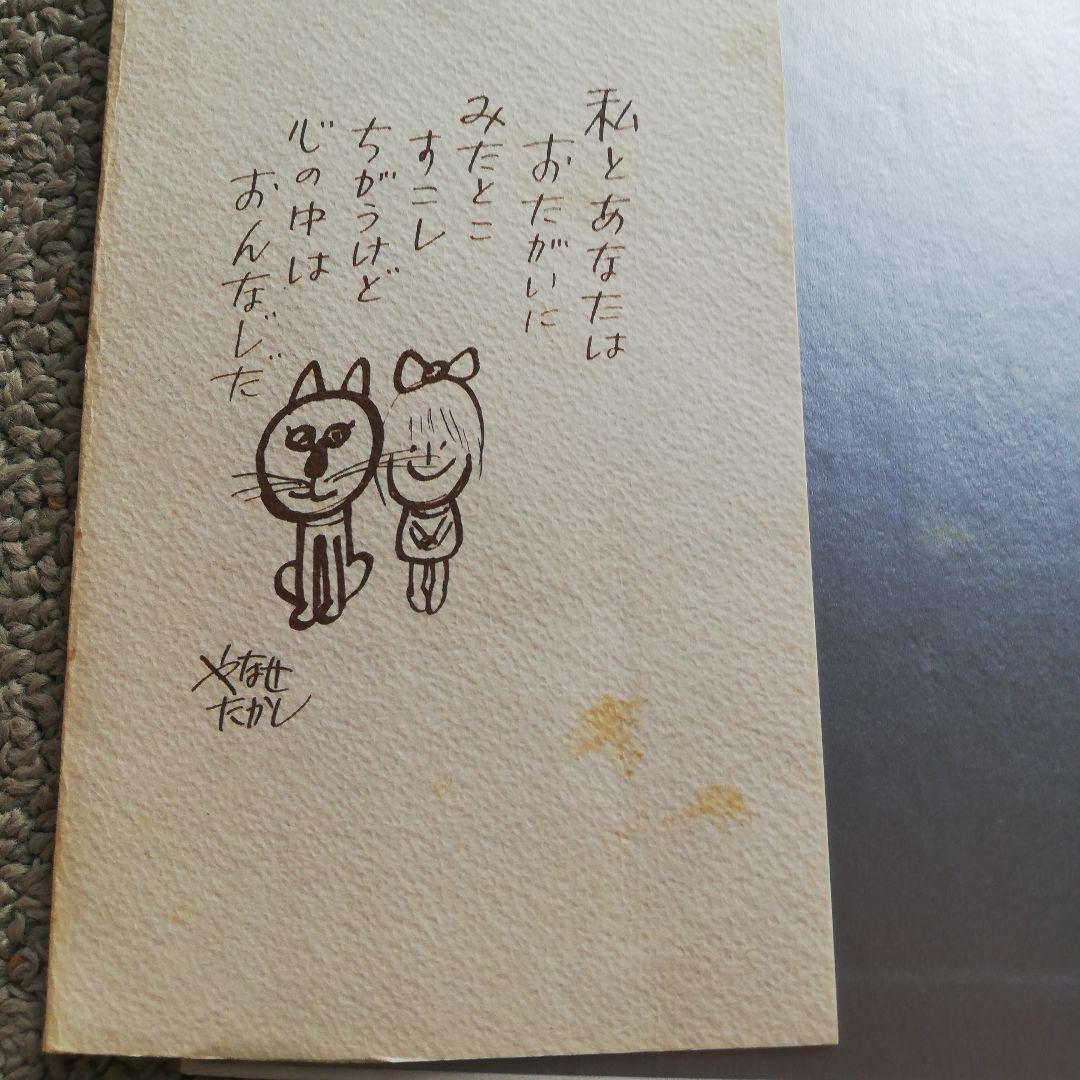 私とあなたは
おたがいに
みたとこ
すこし
ちがうけど
心の中は
おんなじ゛だ
やなせ
たかし